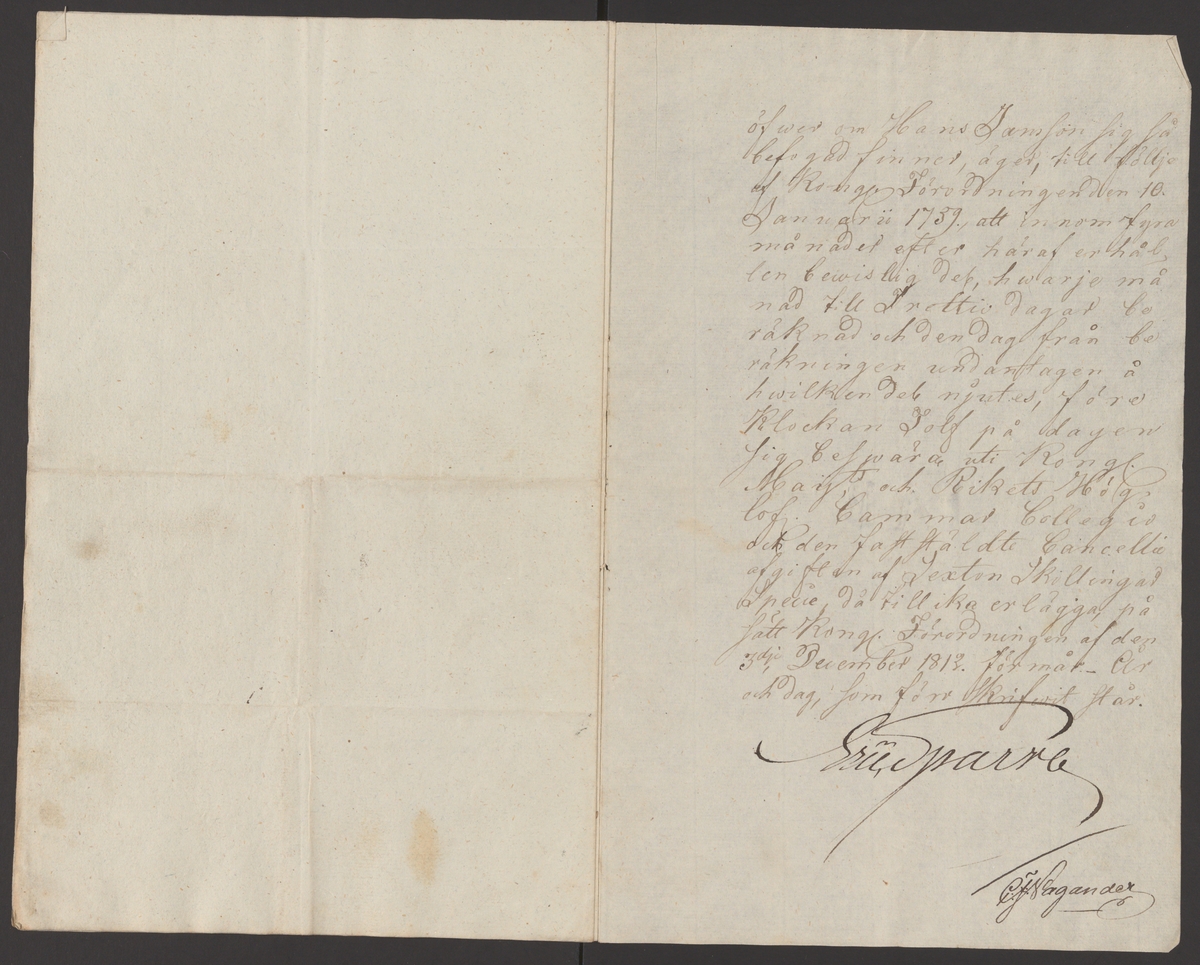 öfwer om Hans Samson sig så
befogad finner, äger, till föllje
af Kongl. Förordningen den 10.
Januarii 1759., att innom fyra
månader efter häraf erhål,
len bewislig del, hwarje må
nad till Trettio dagar be
räknad och den dag från be
räkningen undantagen å
hwilken del njutes, före
Klockan Tolf på dagen
sig beswära uti Kongl.
Maijts. och Rikets Högl.
lofl. Cammar Collegio
och den faststäldte Cancellie
afgiften af Sexton Skillingar
Specie, då tillika erlägga, på
sätt Kongl. Förordningen af den
3dje December 1812. förmår. – År
och dag, som förr skrifwit står.
Eric Sparre
Wagander